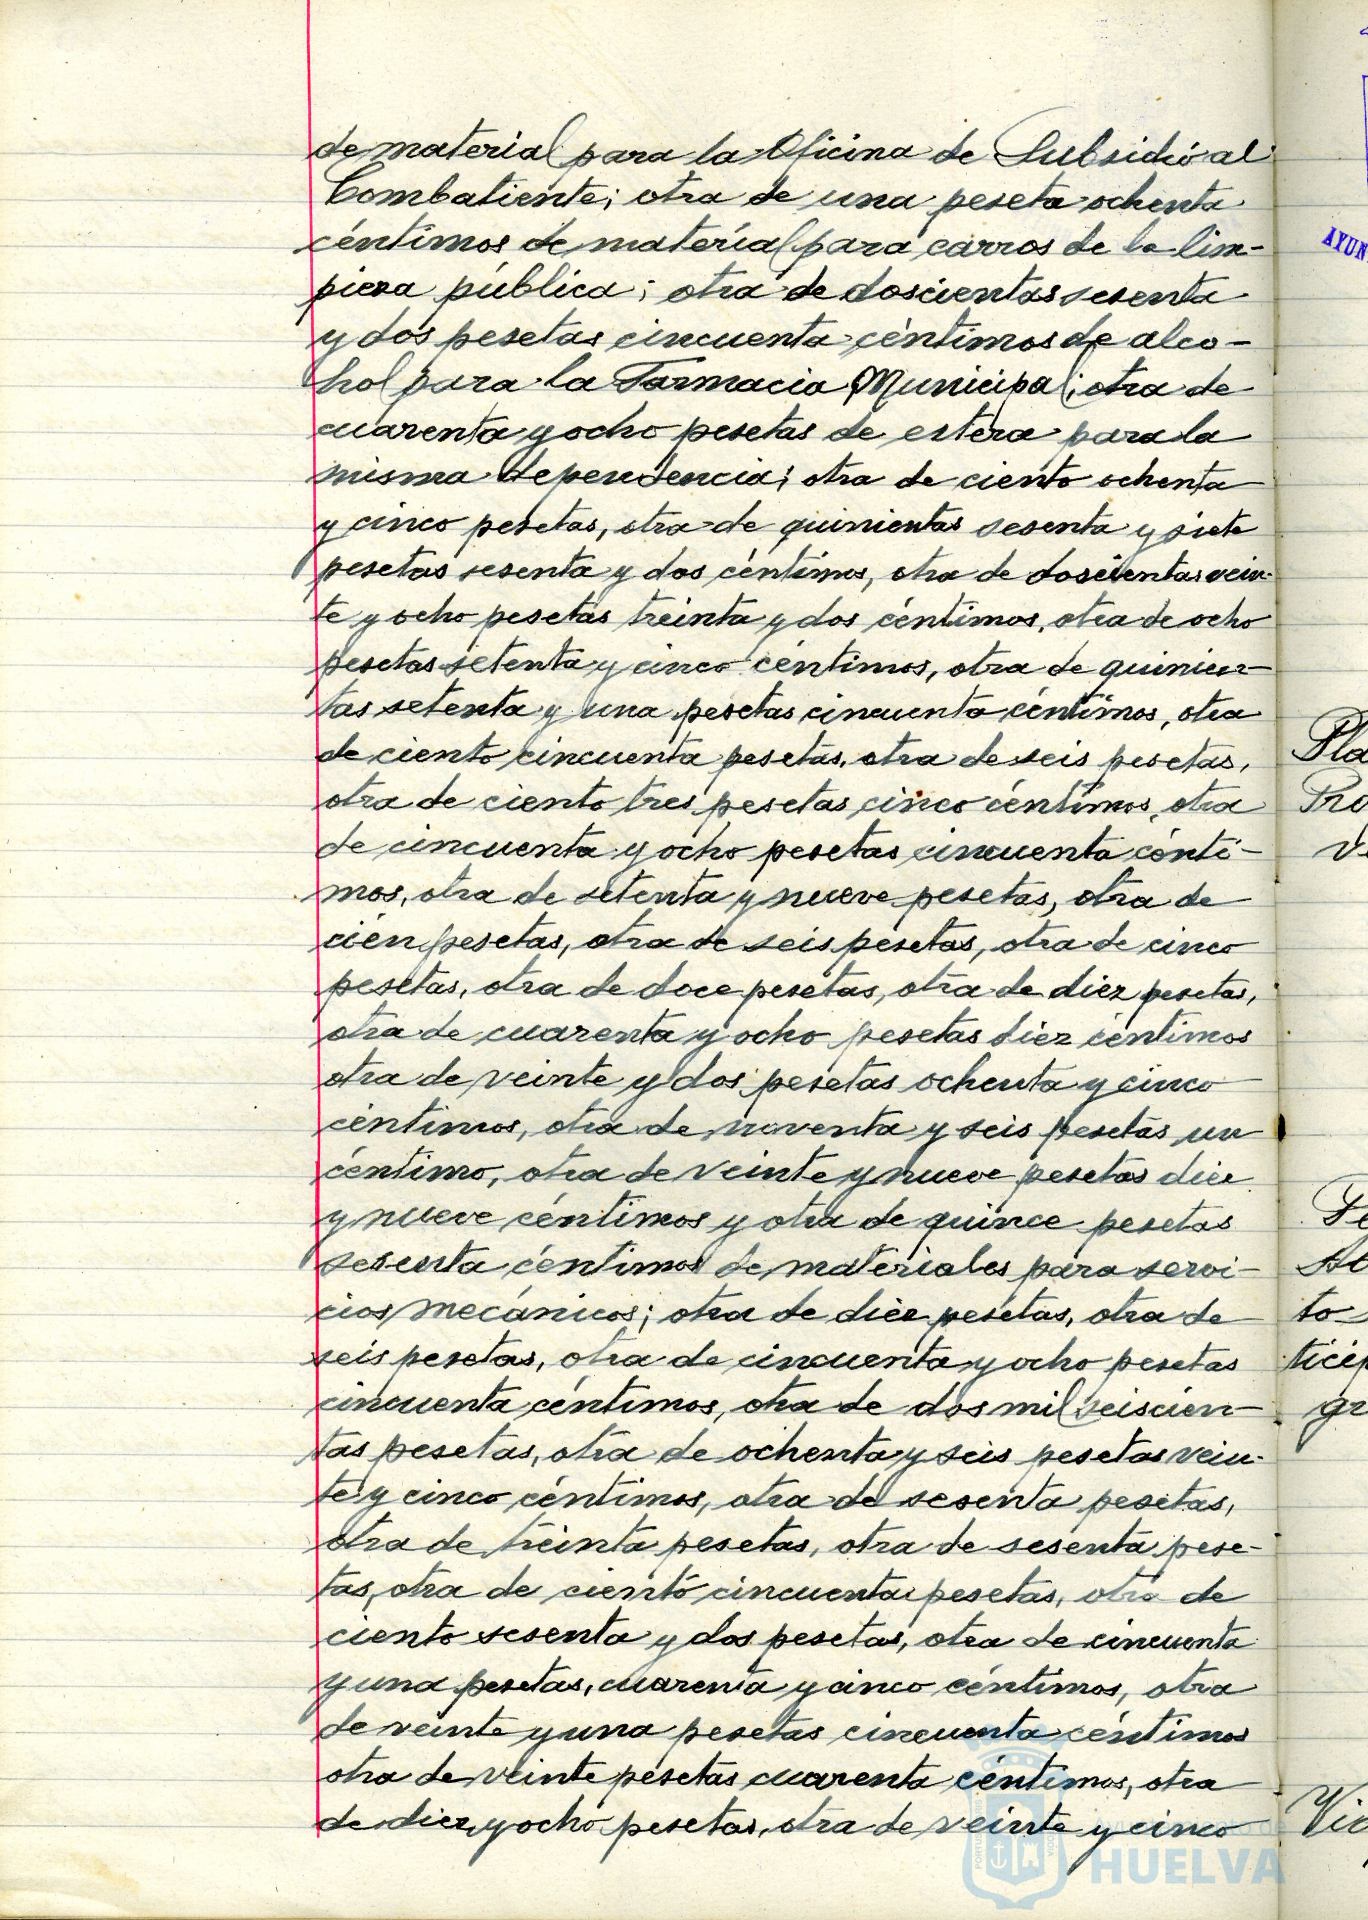 de material para la Oficina de Subsidio al
Combatiente; otra de una peseta ochenta
céntimos de material para carros de la lim-
pieza pública; otra de doscientas sesenta
y dos pesetas cincuenta céntimos de alco-
hol para la Farmacia Municipal; otra de
cuarenta y ocho pesetas de estera para la
misma dependencia; otra de ciento ochenta
y cinco pesetas, otra de quinientas sesenta y siete
pesetas sesenta y dos céntimos, otra de doscientas vein-
te y ocho pesetas treinta y dos céntimos, otra de ocho
pesetas setenta y cinco céntimos, otra de quinien-
tas setenta y una pesetas cincuenta céntimos, otra
de ciento cincuenta pesetas, otra de seis pesetas,
otra de ciento tres pesetas cinco céntimos, otra
de cincuenta y ocho pesetas cincuenta cénti-
mos, otra de setenta y nueve pesetas, otra de
cien pesetas, otra de seis pesetas, otra de cinco
pesetas, otra de doce pesetas, otra de diez pesetas,
otra de cuarenta y ocho pesetas diez céntimos
otra de veinte y dos pesetas ochenta y cinco
céntimos, otra de noventa y seis pesetas un
céntimo, otra de veinte y nueve pesetas diez
y nueve céntimos y otra de quince pesetas
sesenta céntimos de materiales para servi-
cios mecánicos; otra de diez pesetas, otra de
seis pesetas, otra de cincuenta y ocho pesetas
cincuenta céntimos, otra de dos mil seiscien-
tas pesetas, otra de ochenta y seis pesetas vein-
te y cinco céntimos, otra de sesenta pesetas,
otra de treinta pesetas, otra de sesenta pese-
tas, otra de ciento cincuenta pesetas, otra de
ciento sesenta y dos pesetas, otra de cincuenta
y una pesetas, cuarenta y cinco céntimos, otra
de veinte y una pesetas cincuenta céntimos
otra de veinte pesetas cuarenta céntimos, otra
de diez y ocho pesetas, otra de veinte y cinco
HUELVA